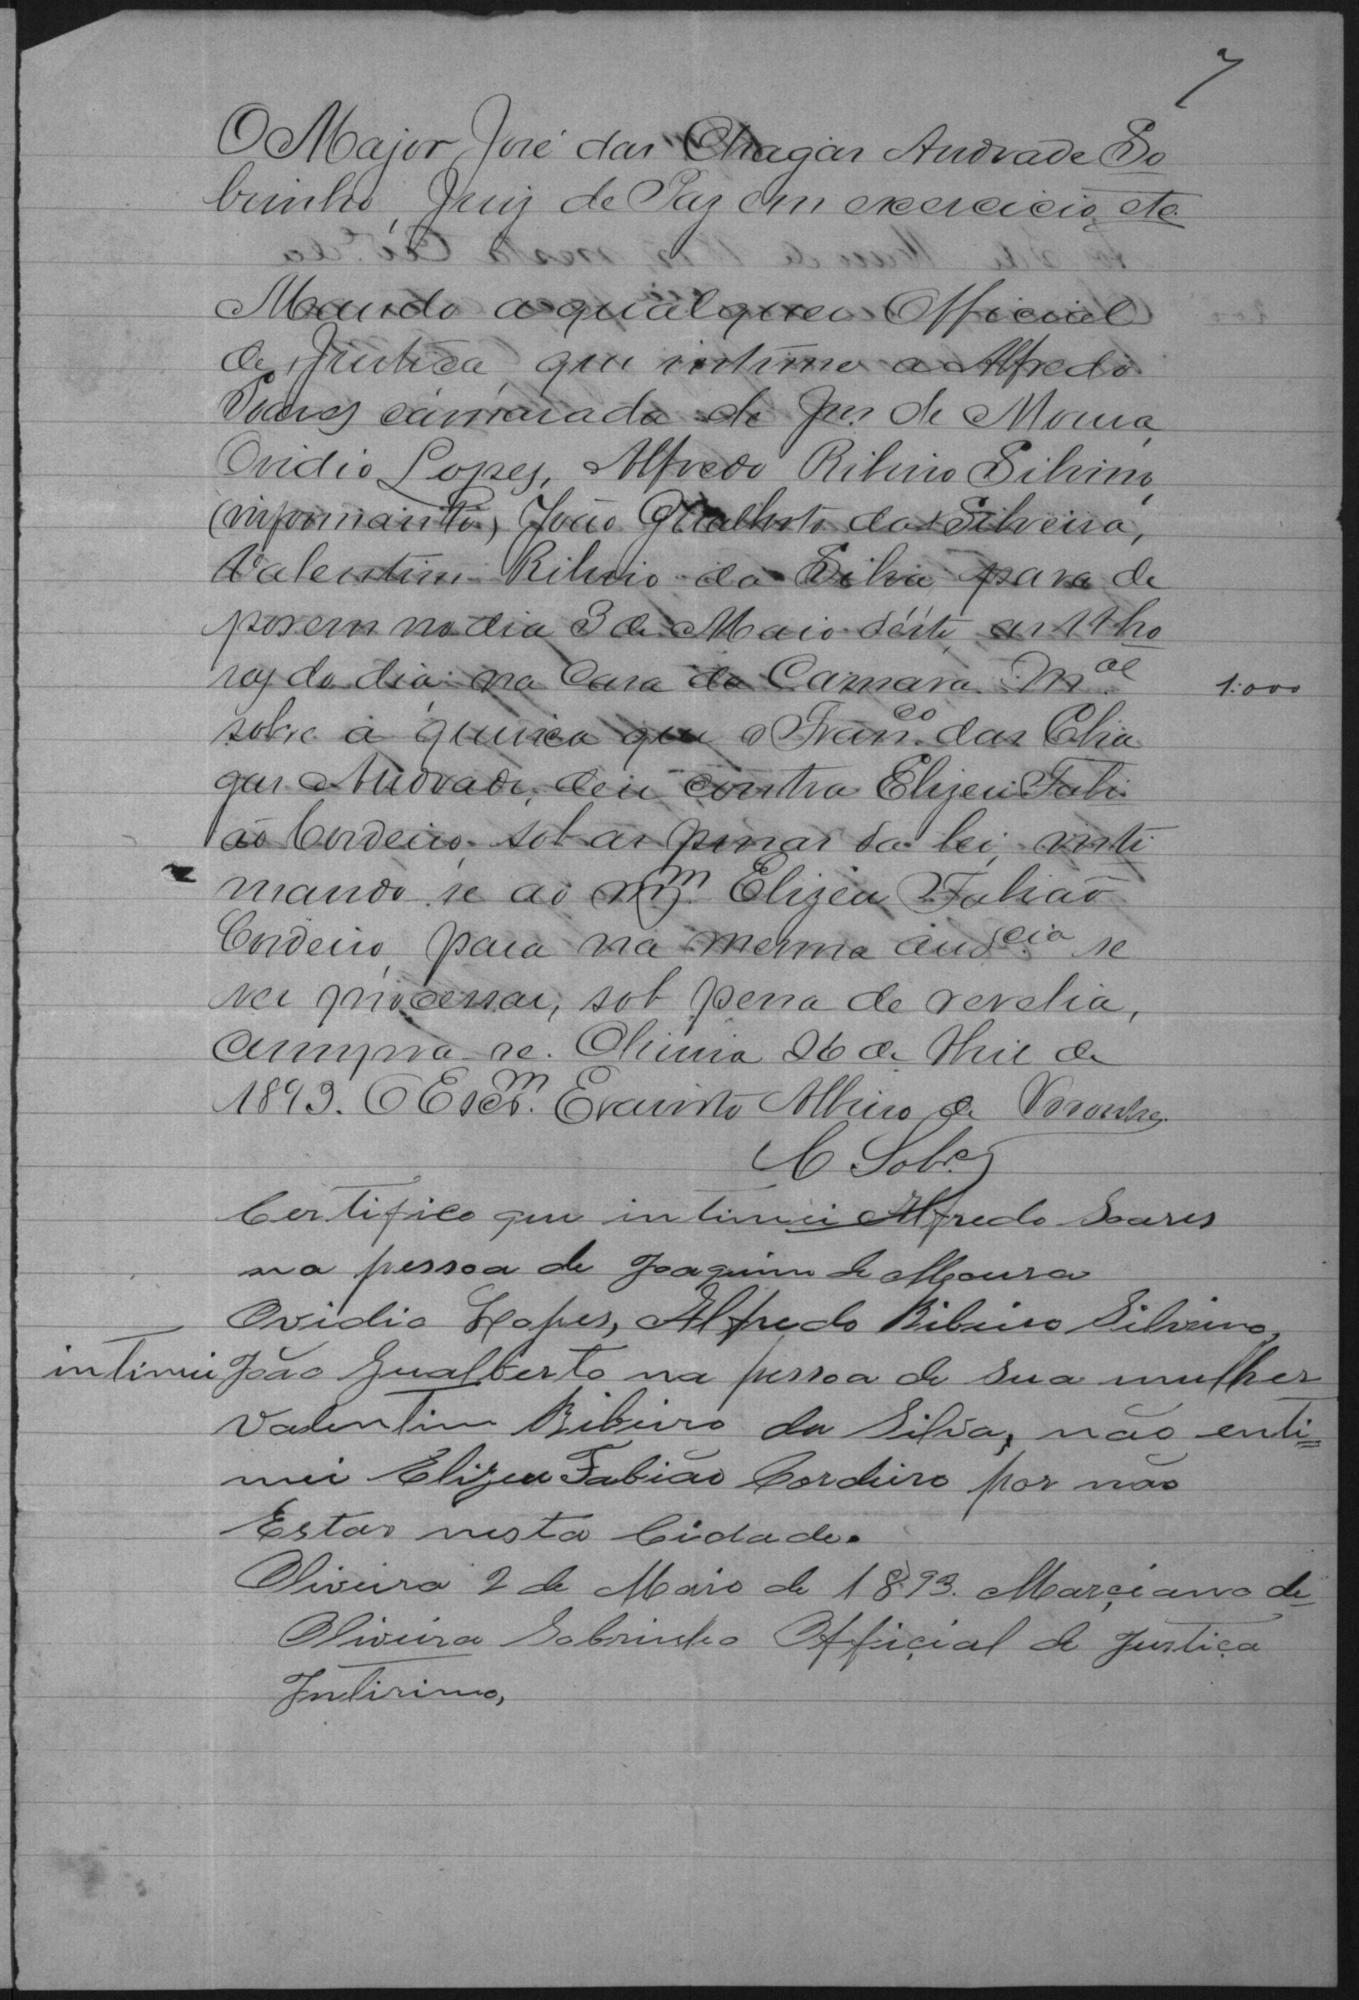 7
O Major José das Chagas Andrade So
brinho, Juiz de Paz em exercicio, etc.
Mando a qualquer Official
de Justiça, que intime a Alfredo
Soares camarada de Jm. de Moura,
Ovidio Lopes, Alfredo Ribeiro Silvino,
(informante), João Gualberto da Silveira,
Valentim Ribeiro da Silva para de
porem no dia 3 de Maio déste, as 11 ho
ras do dia na Casa da Camara Mal.
1:000
sobre a queixa que o Franco. das Cha
gas Andrade, deu contra Elizeu Fabi
ão Cordeiro, sob as penas da lei, inti
mando se ao mmo. Elizeu Fabião
Cordeiro, para na mesma audcia. se
ver processar, sob pena de revelia,
Cumpra-se. Oliveira 26 de Abril de
1893. O Escm. Evaristo Albino de
Certifico que intimei Alfredo Soares
na pessoa de Joaquim de Moura
Ovidio Lopes, Alfredo Ribeiro Silvino,
intimei João Gualberto na pessoa de sua mulher
Valentim Ribeiro da Silva, não enti=
mei Elizeu Fabião Cordeiro por não
Estar nesta Cidade.
Oliveira 2 de Maio de 1893. Marçiano de
Oliveira Sobrinho Offiçial de Justiça
Intirino,